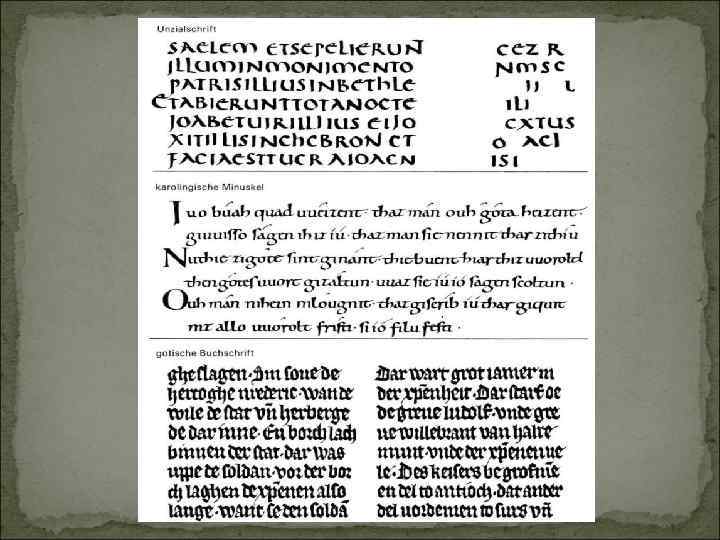 Unzialschrift
SAELEM ETSEPELIERUNT
ILLUMINMONIMENTO
PATRISILLIUSINBETHLE
ETABIERUNTTOTANOCTE
IOABETUIRILLIUS
XITILLISINCHEBRON ET
CEZ R
NMSC
II L
ILI
CXTUS
O ACI
ISI
karolingische Minuskel
Iuo buah quad uueizent· thaz mán ouh góta heizent·
giuuisso ságen ih iz iú· thaz man sie nennit thar zi thiu
Nu thie zi gote sint ginánt· thie buent hiar thiz uuorolt
then gótes uuort gizaltun· uuaz sie iú ió ságen scoltun·
Ouh mán nihein nlougnit· thaz giscrib iú thaz giquit
allo uuorolt frista· si ió filu festa·
gotische Buchschrift
gheslagen·Im soue de
hertoghe vrederic·wande
wile de stat vñ herberge
de dar inne·En borch lach
binnen der stat·dar was
uppe de soldan·vor der bor
ch laghen de xpenen also
lange·want se den soldā
Dar wart grot iamer in
der xpenheit·Dar starf oc
de greue ludolf·vnde gre
ue willebrant van halre
munt·vnde der xpenen ue
le·Des keisers begrof me
en del to antioch·dat ander
del uordemen to surs vñ